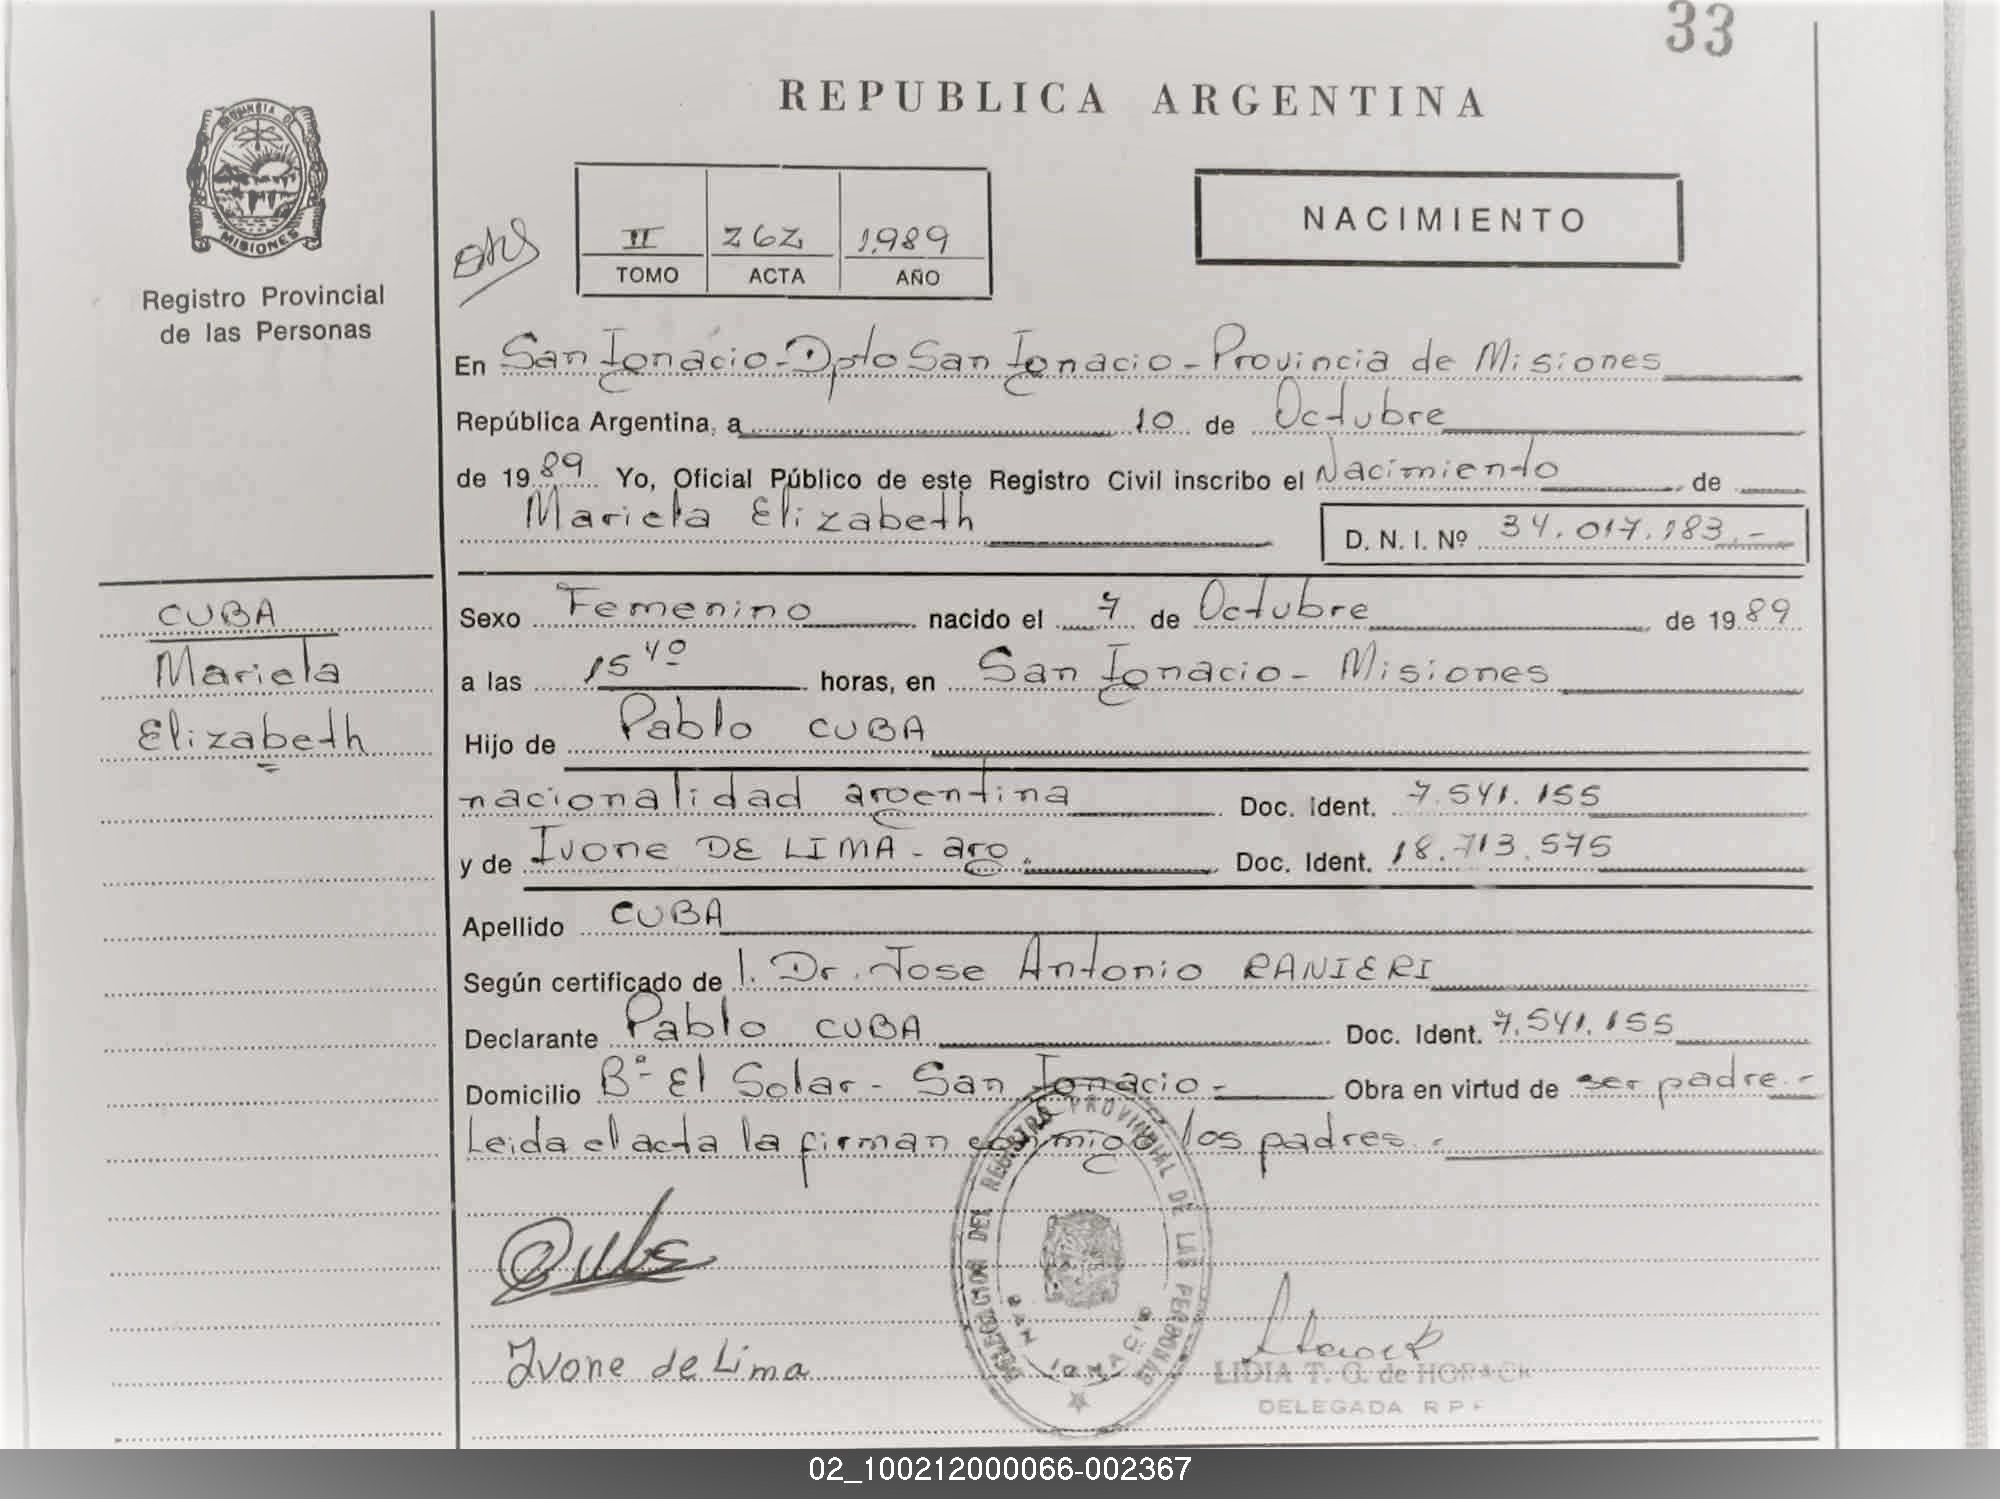 33
REPUBLICA ARGENTINA
PROVINCIA DE
MISIONES
Registro Provincial
de las Personas
II 262 1989
TOMO ACTA AÑO
NACIMIENTO
En San Ignacio-Dpto San Ignacio-Provincia de Misiones
República Argentina, a 10 de Octubre
de 1989 Yo, Oficial Público de este Registro Civil inscribo el Nacimiento de
Mariela Elizabeth
D. N. I. Nº 34.017.183.-
CUBA
Mariela
Elizabeth
Sexo Femenino nacido el 7 de Octubre de 1989
a las 15 40 horas, en San Ignacio- Misiones
Hijo de Pablo CUBA
nacionalidad argentina Doc. Ident. 7.541.155
y de Ivone DE LIMA - arg. Doc. Ident. 18.713.575
Apellido CUBA
Según certificado de l. Dr. Jose Antonio RANIERI
Declarante Pablo CUBA Doc. Ident. 7.541.155
Domicilio Bº El Solar- San Ignacio- Obra en virtud de ser padre.-
Leida el acta la firman conmigo los padres.-
DELEGACION DEL REGISTRO PROVINCIAL DE LAS PERSONAS
SAN IGNACIO
Ivone de Lima
LIDIA T. G. de HORACK
DELEGADA R P
02_100212000066-002367